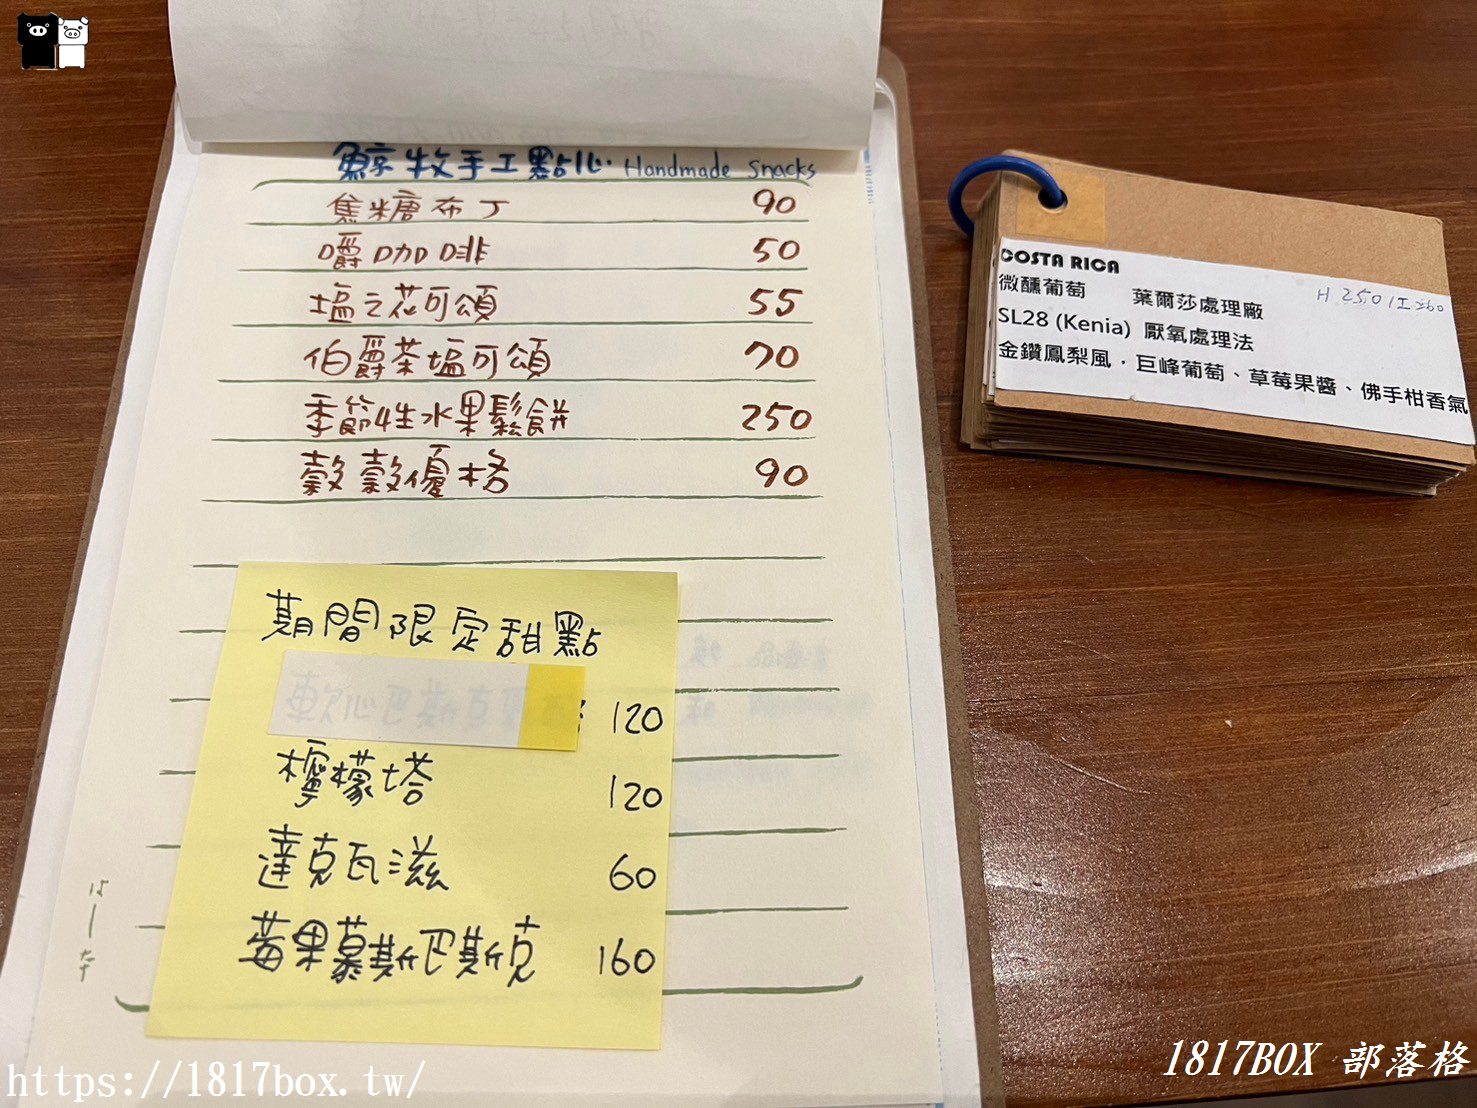 鯨牧手工點心 Handmade Snacks
焦糖布丁 90
嚼咖啡 50
塩之花可頌 55
伯爵茶塩可頌 70
季節性水果鬆餅 250
穀穀優格 90
期間限定甜點
軟心巴斯克 120
檸檬塔 120
達克瓦滋 60
莓果慕斯巴斯克 160
COSTA RICA
微醺葡萄 葉爾莎處理廠 H 250 / I 260
SL28 (Kenia) 厭氧處理法
金鑽鳳梨風．巨峰葡萄、草莓果醬、佛手柑香氣
https://1817box.tw/
1817BOX 部落格